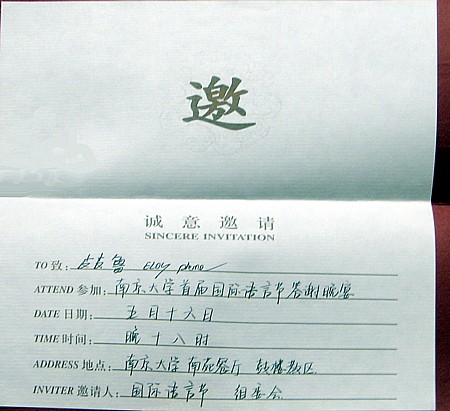 邀
诚意邀请
SINCERE INVITATION
TO 致:
ATTEND 参加: 南京大学首届国际语言节答谢晚宴
DATE 日期: 五月十六日
TIME 时间: 晚十八时
ADDRESS 地点: 南京大学 南苑餐厅 鼓楼校区
INVITER 邀请人: 国际语言节 组委会